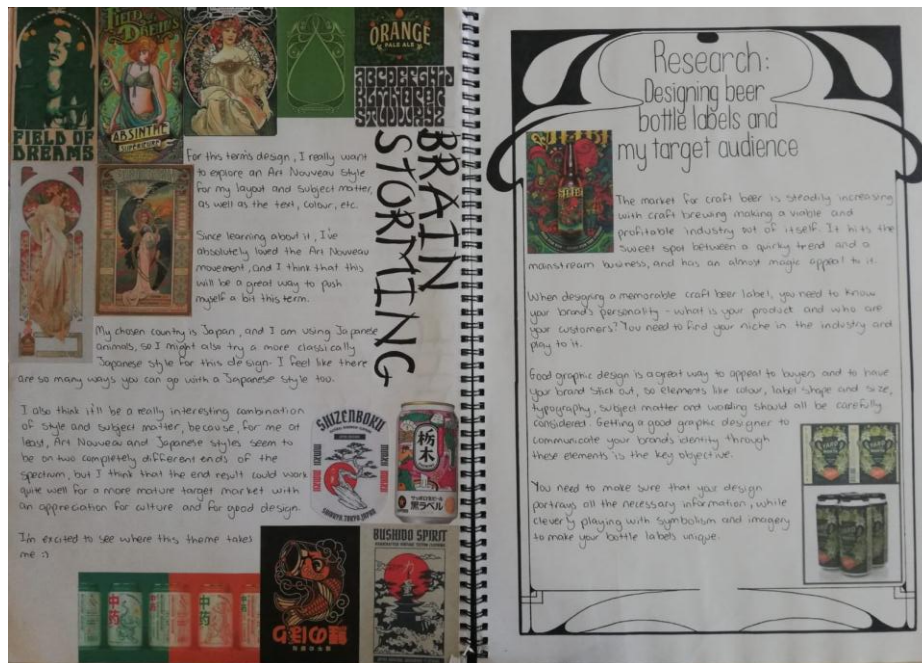 FIELD OF
DREAMS
FIELD OF
DREAMS
ABSINTHE
SUPERIEURE
ORANGE
PALE ALE
BRAIN
STORMING
For this term's design, I really want
to explore an Art Nouveau style
for my layout and subject matter,
as well as the text, colour, etc.
Since learning about it, I've
absolutely loved the Art Nouveau
movement, and I think that this
will be a great way to push
myself a bit this term.
My chosen country is Japan, and I am using Japanese
animals, so I might also try a more classically
Japanese style for this design - I feel like there
are so many ways you can go with a Japanese style too.
I also think it'll be a really interesting combination
of style and subject matter, because, for me at
least, Art Nouveau and Japanese styles seem to
be on two completely different ends of the
spectrum, but I think that the end result could work
quite well for a more mature target market with
an appreciation for culture and for good design.
I'm excited to see where this theme takes
me :)
SHIZENBOKU
栃
木
黒ラベル
BUSHIDO SPIRIT
中药
中药
中药
Research:
Designing beer
bottle labels and
my target audience
The market for craft beer is steadily increasing
with craft brewing making a viable and
profitable industry out of itself. It hits the
sweet spot between a quirky trend and a
mainstream business, and has an almost magic appeal to it.
When designing a memorable craft beer label, you need to know
your brand's personality - what is your product and who are
your customers? You need to find your niche in the industry and
play to it.
Good graphic design is a great way to appeal to buyers and to have
your brand stick out, so elements like colour, label shape and size,
typography, subject matter and wording should all be carefully
considered. Getting a good graphic designer to
communicate your brand's identity through
these elements is the key objective.
You need to make sure that your design
portrays all the necessary information, while
cleverly playing with symbolism and imagery
to make your bottle labels unique.